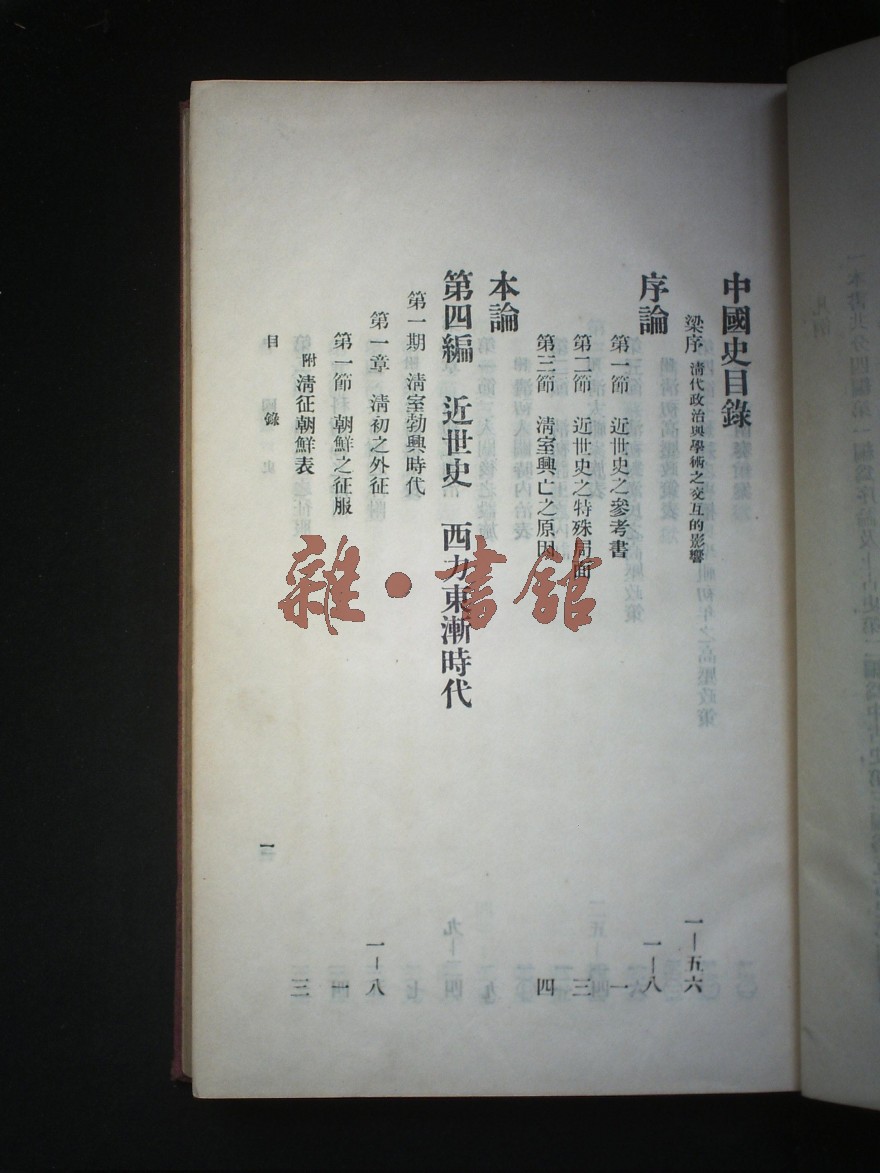 中國史目錄
梁序 清代政治與學術之交互的影響 一—五六
序論 一—八
第一節 近世史之參考書 一
第二節 近世史之特殊局面 三
第三節 清室興亡之原因 四
本論
第四編 近世史 西力東漸時代
第一期 清室勃興時代
第一章 清初之外征 一—八
第一節 朝鮮之征服 一
附 清征朝鮮表 三
目錄 一
雜·書館